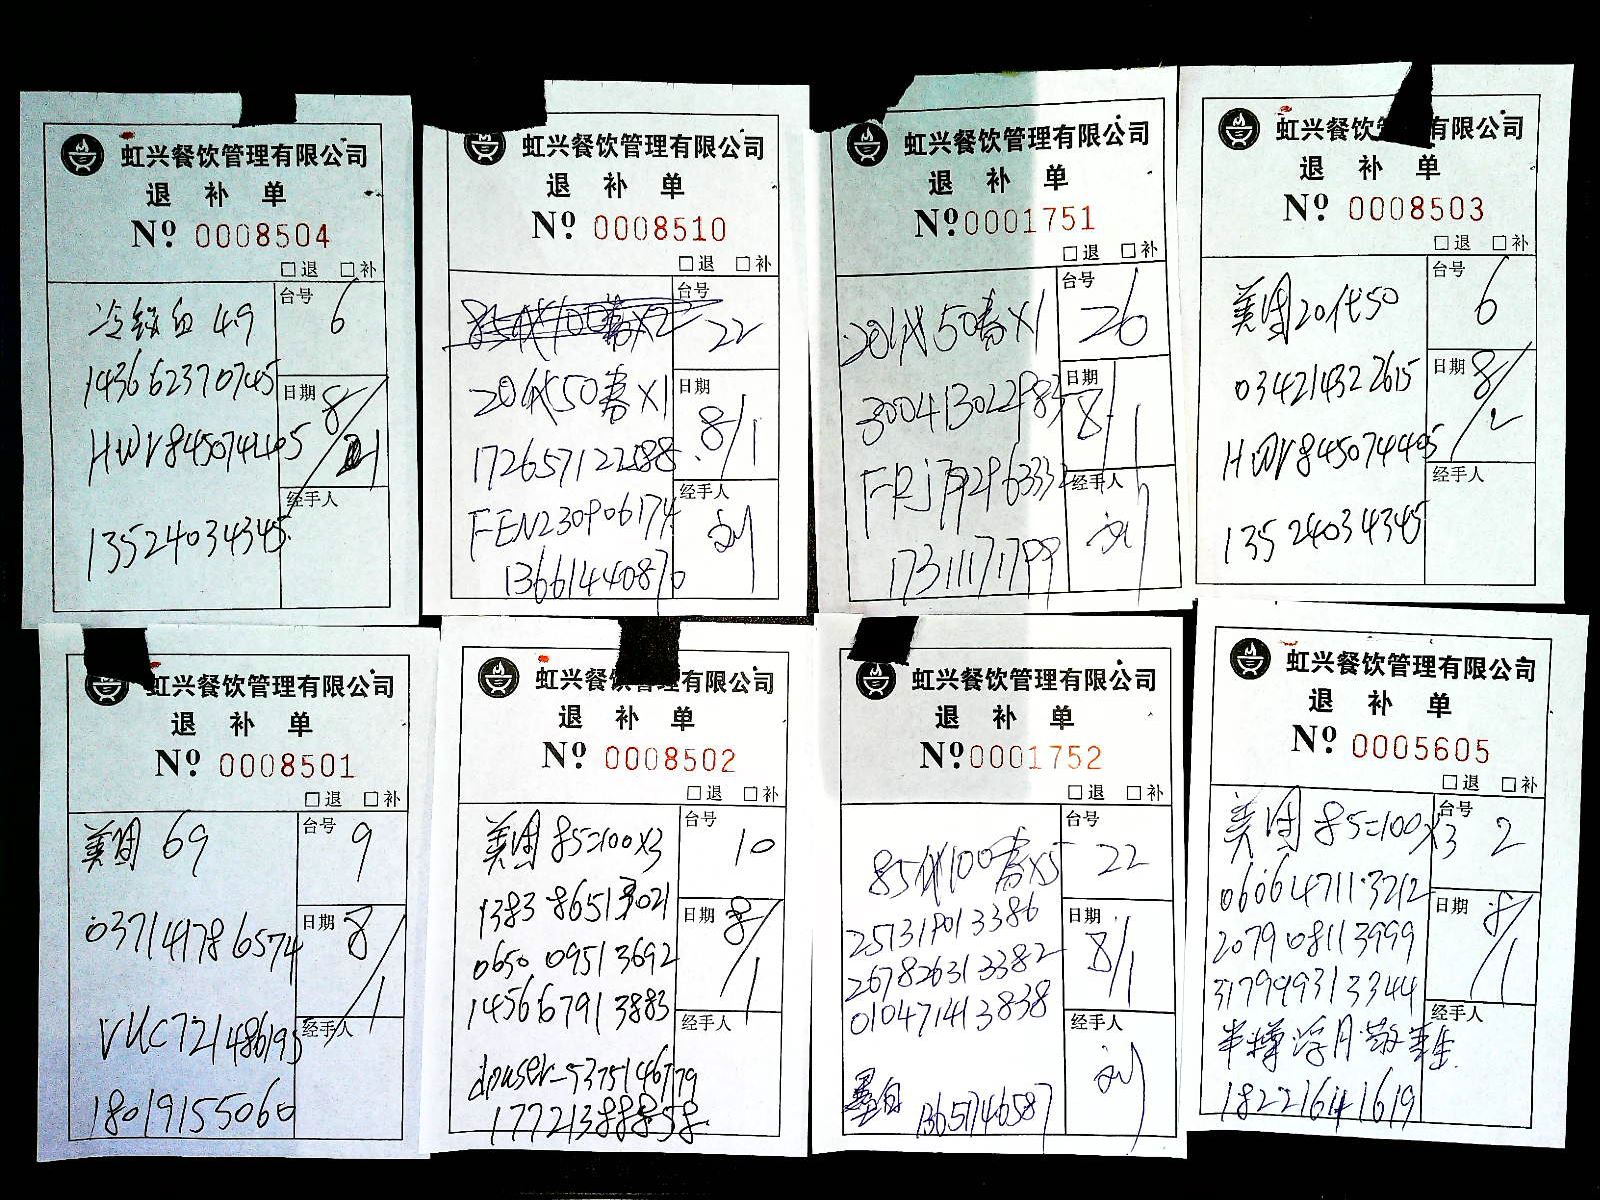 虹兴餐饮管理有限公司
退 补 单
Nº 0008504
□退 □补
台号 6
冷 血 49
143662370745
日期 8/21
HWV8450744405
经手人
13524034345
虹兴餐饮管理有限公司
退 补 单
Nº 0008510
□退 □补
台号 22
85代100套×2
20代50套×1
日期 8/1
172657122588
经手人 刘
FEN230906174
13661440870
虹兴餐饮管理有限公司
退 补 单
Nº 0001751
□退 □补
台号 26
20代50套×1
日期 8/1
300413022983
经手人 刘
17311171799
虹兴餐饮管理有限公司
退 补 单
Nº 0008503
□退 □补
台号 6
美团20代50
日期 8/2
034214322615
HWV8450744405
经手人
13524034345
虹兴餐饮管理有限公司
退 补 单
Nº 0008501
□退 □补
台号 9
美团 69
日期 8/1
037141786574
经手人
VUC721486195
18019155060
虹兴餐饮管理有限公司
退 补 单
Nº 0008502
□退 □补
台号 10
美团 85=100×3
1383 86513021
日期 8/1
0650 09513692
145667913883
经手人
dpuser_5375146779
17721388858
虹兴餐饮管理有限公司
退 补 单
Nº 0001752
□退 □补
台号 22
85代100套×5
日期 8/1
257319013386
267826313382
010471413838
经手人 刘
墨白 13651746587
虹兴餐饮管理有限公司
退 补 单
Nº 0005605
□退 □补
台号 2
美团 85=100×3
060647113212
日期 8/1
207908113999
317999313344
经手人
半樽浮月
18221641619